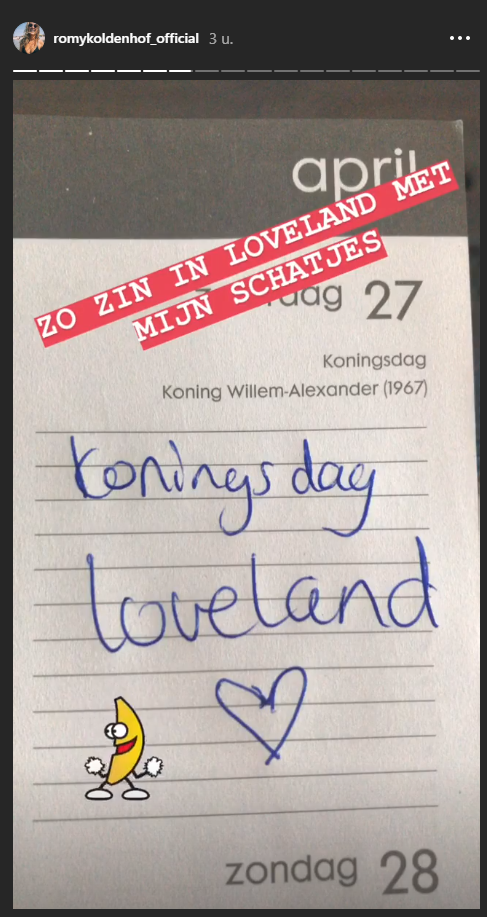 romykoldenhof_official 3 u.
april
ZO ZIN IN LOVELAND MET
MIJN SCHATJES
27
Koningsdag
Koning Willem-Alexander (1967)
Koningsdag
loveland
zondag 28